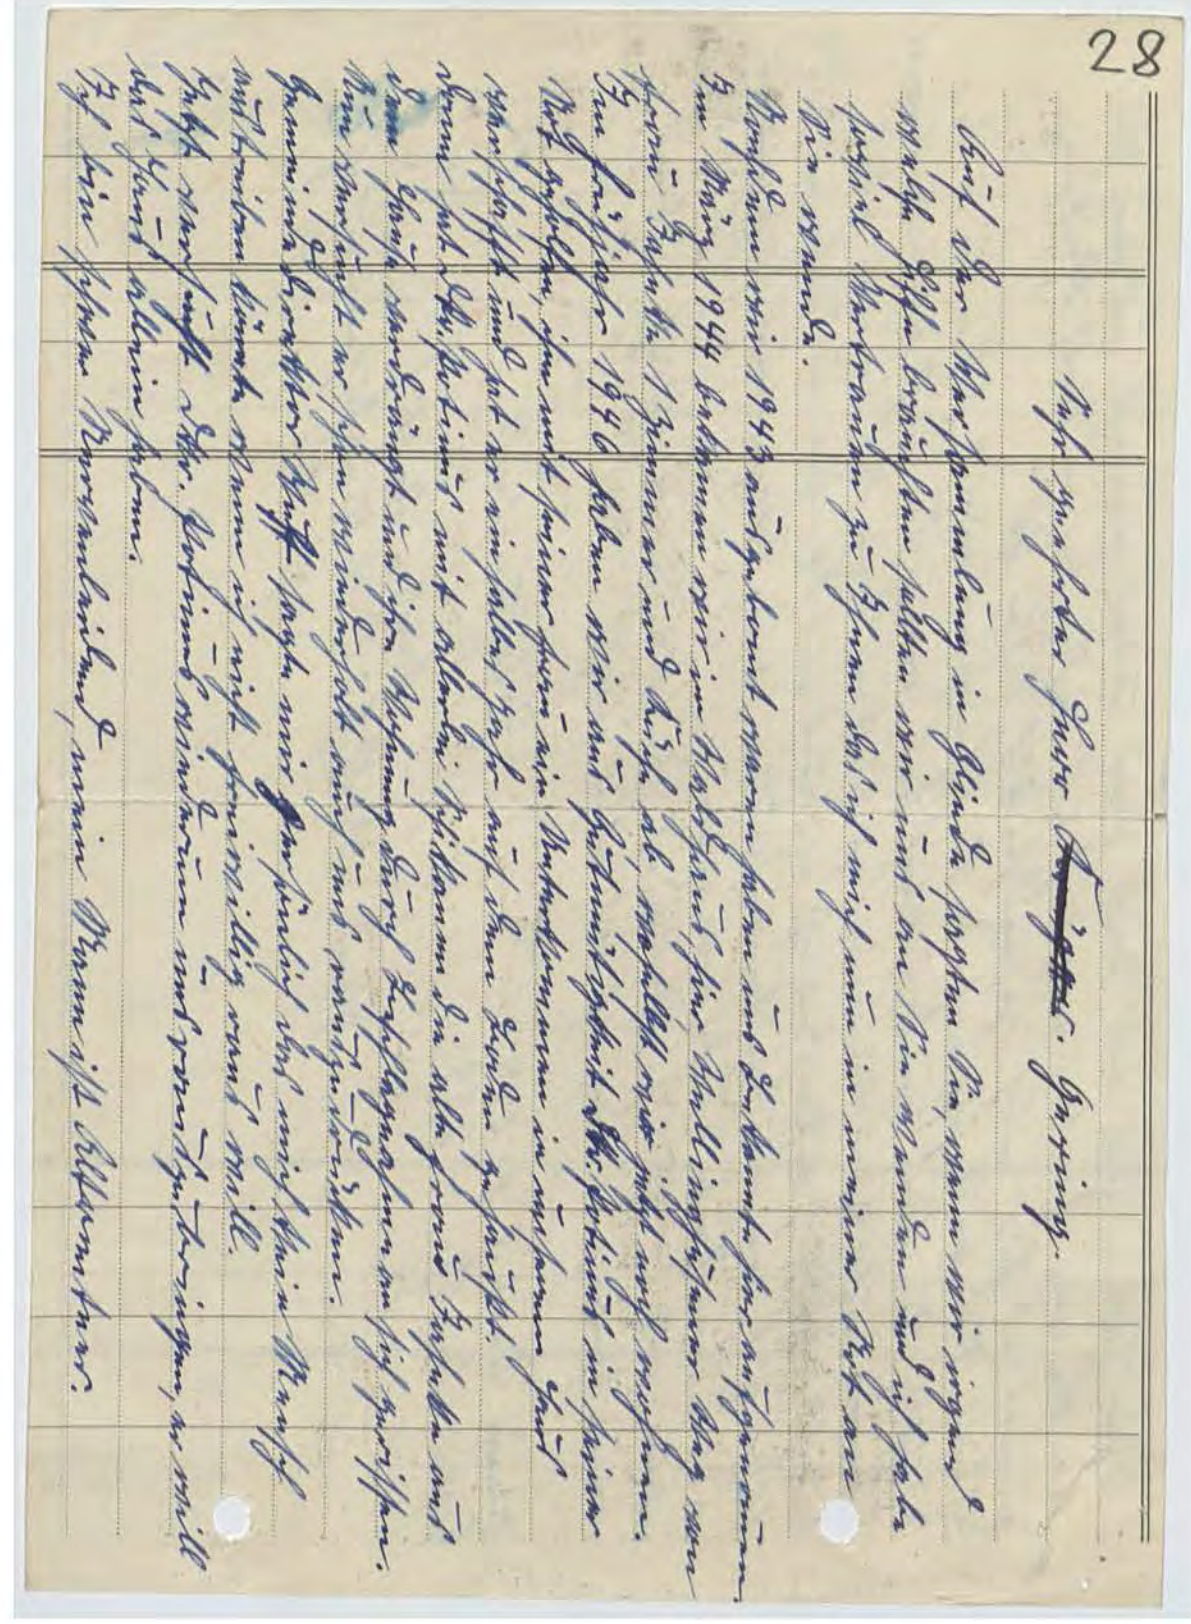 28
Sehr geehrter Herr Gering.
Auf der Versammlung in Glinde sagten Sie, wenn wir irgend
welche Hilfe brauchten sollten wir uns an Sie wenden und ich habe
soviel Vertrauen zu Ihnen das ich mich nun in meiner Not an
Sie wende.
Nachdem wir 1943 ausgebomt waren haben uns Bekannte hier aufgenommen.
Im März 1944 bekamen wir im Waldhaus, hier, Weg von
Frau 1 Zimmer und Küche ab, woselbst wir jetzt noch wohnen.
Im Frühjahr 1946 haben wir aus Gutmütigkeit in seiner
Not geholfen, ihm mit seiner Frau ein Unterkommen in unserem Haus
verschafft und hat er ein halbes Jahr auf dem Boden gehaust.
Dann hat mit allerlei Schikanen die alte Frau aus
dem Hause verdrängt und ihre Wohnung durch Beschlagnahme an sich gerissen.
Nun versucht er schon wiederholt auch uns rauszudrücken.
Gemeindedirektor sagte mir persönlich das mich kein Mensch
austreiben könnte wenn ich nicht freiwillig raus will.
Jetzt versucht wiederum uns rauszubringen, er will
das Haus allein haben.
Ich bin schwer Nervenleidend, mein Mann ist Altrentner.